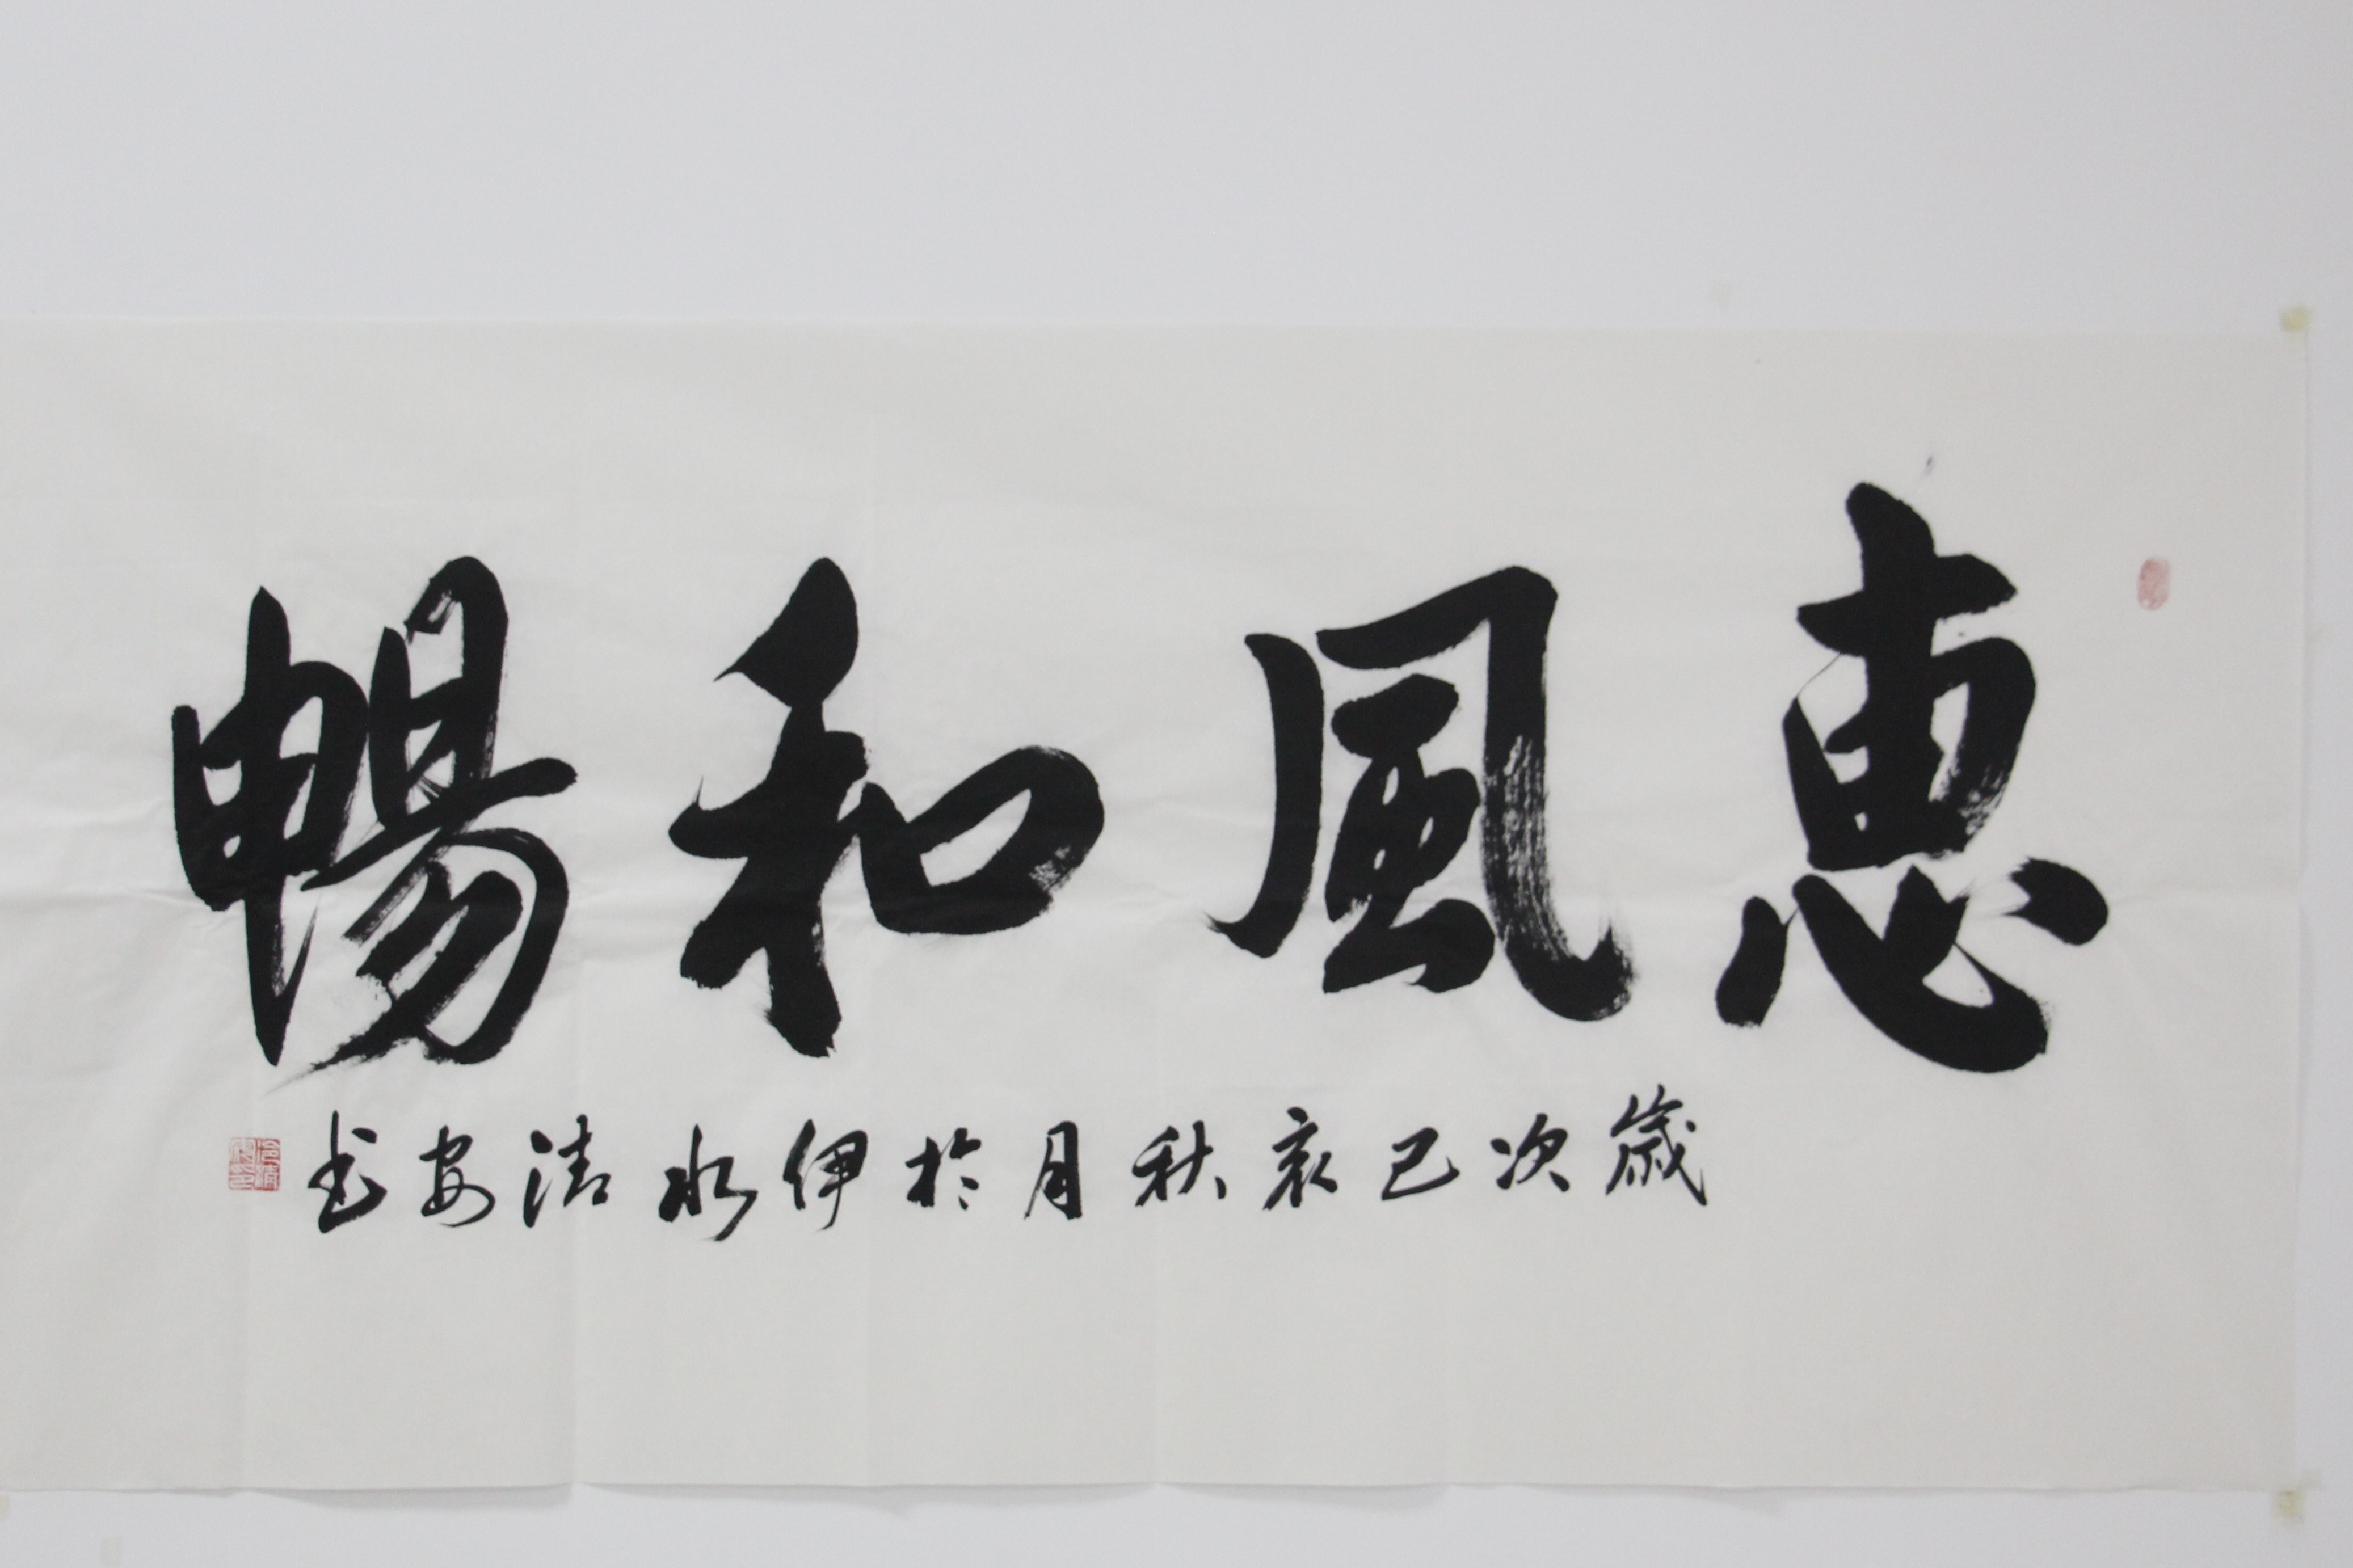 惠風和暢
歲次己亥秋月於伊水清安书